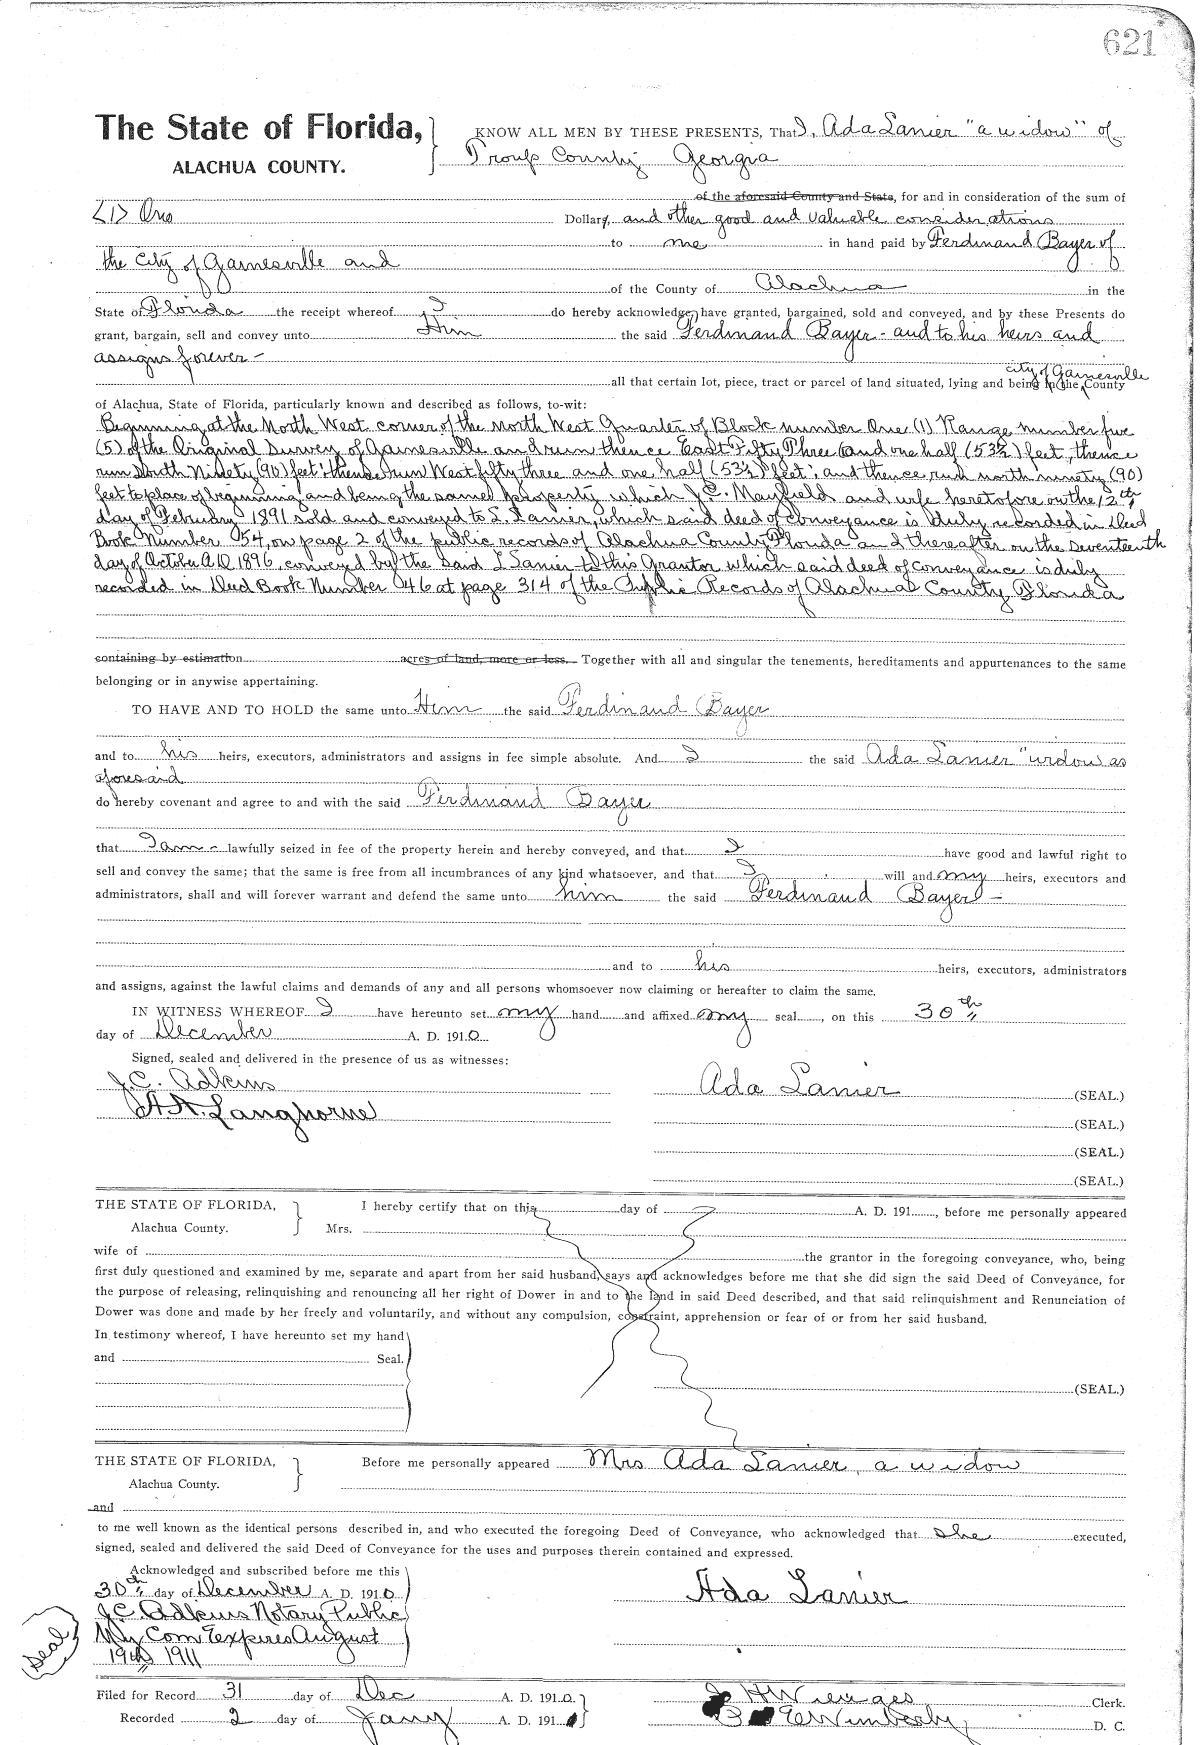 621
The State of Florida, KNOW ALL MEN BY THESE PRESENTS, That I, Ada Lanier "a widow" of
ALACHUA COUNTY. Troup County Georgia
of the aforesaid County and State, for and in consideration of the sum of
<1> One Dollar, and other good and valuable considerations
to me in hand paid by Ferdinand Bayer of
the City of Gainesville and
of the County of Alachua in the
State of Florida the receipt whereof I do hereby acknowledge, have granted, bargained, sold and conveyed, and by these Presents do
grant, bargain, sell and convey unto Him the said Ferdinand Bayer - and to his heirs and
assigns forever -
city of Gainesville
all that certain lot, piece, tract or parcel of land situated, lying and being in the County
of Alachua, State of Florida, particularly known and described as follows, to-wit:
Beginning at the North West corner of the North West Quarter of Block number One (1) Range number five
(5) of the Original Survey of Gainesville and run thence East Fifty Three and one half (53½) feet, thence
run South Ninety (90) feet; thence run West fifty three and one half (53½) feet; and thence run north ninety (90)
feet to place of beginning and being the same property which J.C. Mayfield and wife heretofore on the 12th
day of February 1891 sold and conveyed to L. Lanier, which said deed of conveyance is duly recorded in Deed
Book Number 54, on page 2 of the public records of Alachua County Florida and thereafter on the seventeenth
day of October A.D. 1896, conveyed by the said L Lanier to this Grantor which said deed of conveyance is duly
recorded in Deed Book Number 46 at page 314 of the Public Records of Alachua County, Florida
containing by estimation acres of land, more or less. Together with all and singular the tenements, hereditaments and appurtenances to the same
belonging or in anywise appertaining.
TO HAVE AND TO HOLD the same unto Him the said Ferdinand Bayer
and to his heirs, executors, administrators and assigns in fee simple absolute. And I the said Ada Lanier "widow as
aforesaid
do hereby covenant and agree to and with the said Ferdinand Bayer
that I am - lawfully seized in fee of the property herein and hereby conveyed, and that I have good and lawful right to
sell and convey the same; that the same is free from all incumbrances of any kind whatsoever, and that I will and my heirs, executors and
administrators, shall and will forever warrant and defend the same unto him the said Ferdinand Bayer -
and to his heirs, executors, administrators
and assigns, against the lawful claims and demands of any and all persons whomsoever now claiming or hereafter to claim the same.
IN WITNESS WHEREOF I have hereunto set my hand and affixed my seal, on this 30th
day of December A. D. 1910
Signed, sealed and delivered in the presence of us as witnesses:
J.C. Adkins Ada Lanier (SEAL.)
Langhorne (SEAL.)
(SEAL.)
(SEAL.)
THE STATE OF FLORIDA, I hereby certify that on this day of A. D. 191, before me personally appeared
Alachua County. Mrs.
wife of the grantor in the foregoing conveyance, who, being
first duly questioned and examined by me, separate and apart from her said husband, says and acknowledges before me that she did sign the said Deed of Conveyance, for
the purpose of releasing, relinquishing and renouncing all her right of Dower in and to the land in said Deed described, and that said relinquishment and Renunciation of
Dower was done and made by her freely and voluntarily, and without any compulsion, constraint, apprehension or fear of or from her said husband.
In testimony whereof, I have hereunto set my hand
and Seal.
(SEAL.)
THE STATE OF FLORIDA, Before me personally appeared Mrs Ada Lanier, a widow
Alachua County.
and
to me well known as the identical persons described in, and who executed the foregoing Deed of Conveyance, who acknowledged that she executed,
signed, sealed and delivered the said Deed of Conveyance for the uses and purposes therein contained and expressed.
Acknowledged and subscribed before me this
30th day of December A. D. 1910 Ada Lanier
J.C. Adkins Notary Public
My Com Expires August
19th 1911
Seal
Filed for Record 31 day of Dec A. D. 1910. H Wienges Clerk.
Recorded 2 day of Jany A. D. 191 Wimberly D. C.